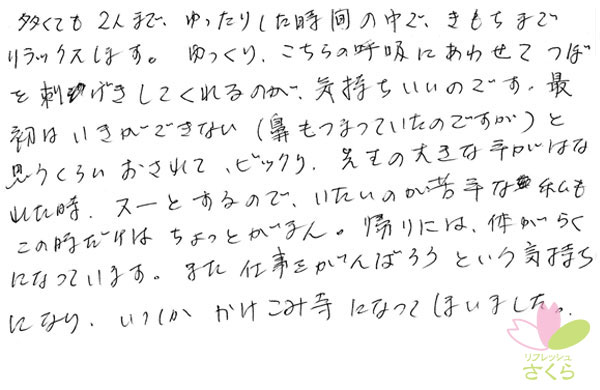 多くても2人まで、ゆったりした時間の中で、きもちまで
リラックスします。ゆっくり、こちらの呼吸にあわせてつぼ
を刺げきしてくれるのが、気持ちいいのです。最
初はいきができない(鼻もつまっていたのですが)と
思うくらいおされて、ビックリ、先生の大きな手がはな
れた時、スーとするので、いたいのが苦手な私も
この時だけはちょっとがまん。帰りには、体がらく
になっています。また仕事をがんばろうという気持ち
になり、いつしかかけこみ寺になってしまいました。
リフレッシュ
さくら